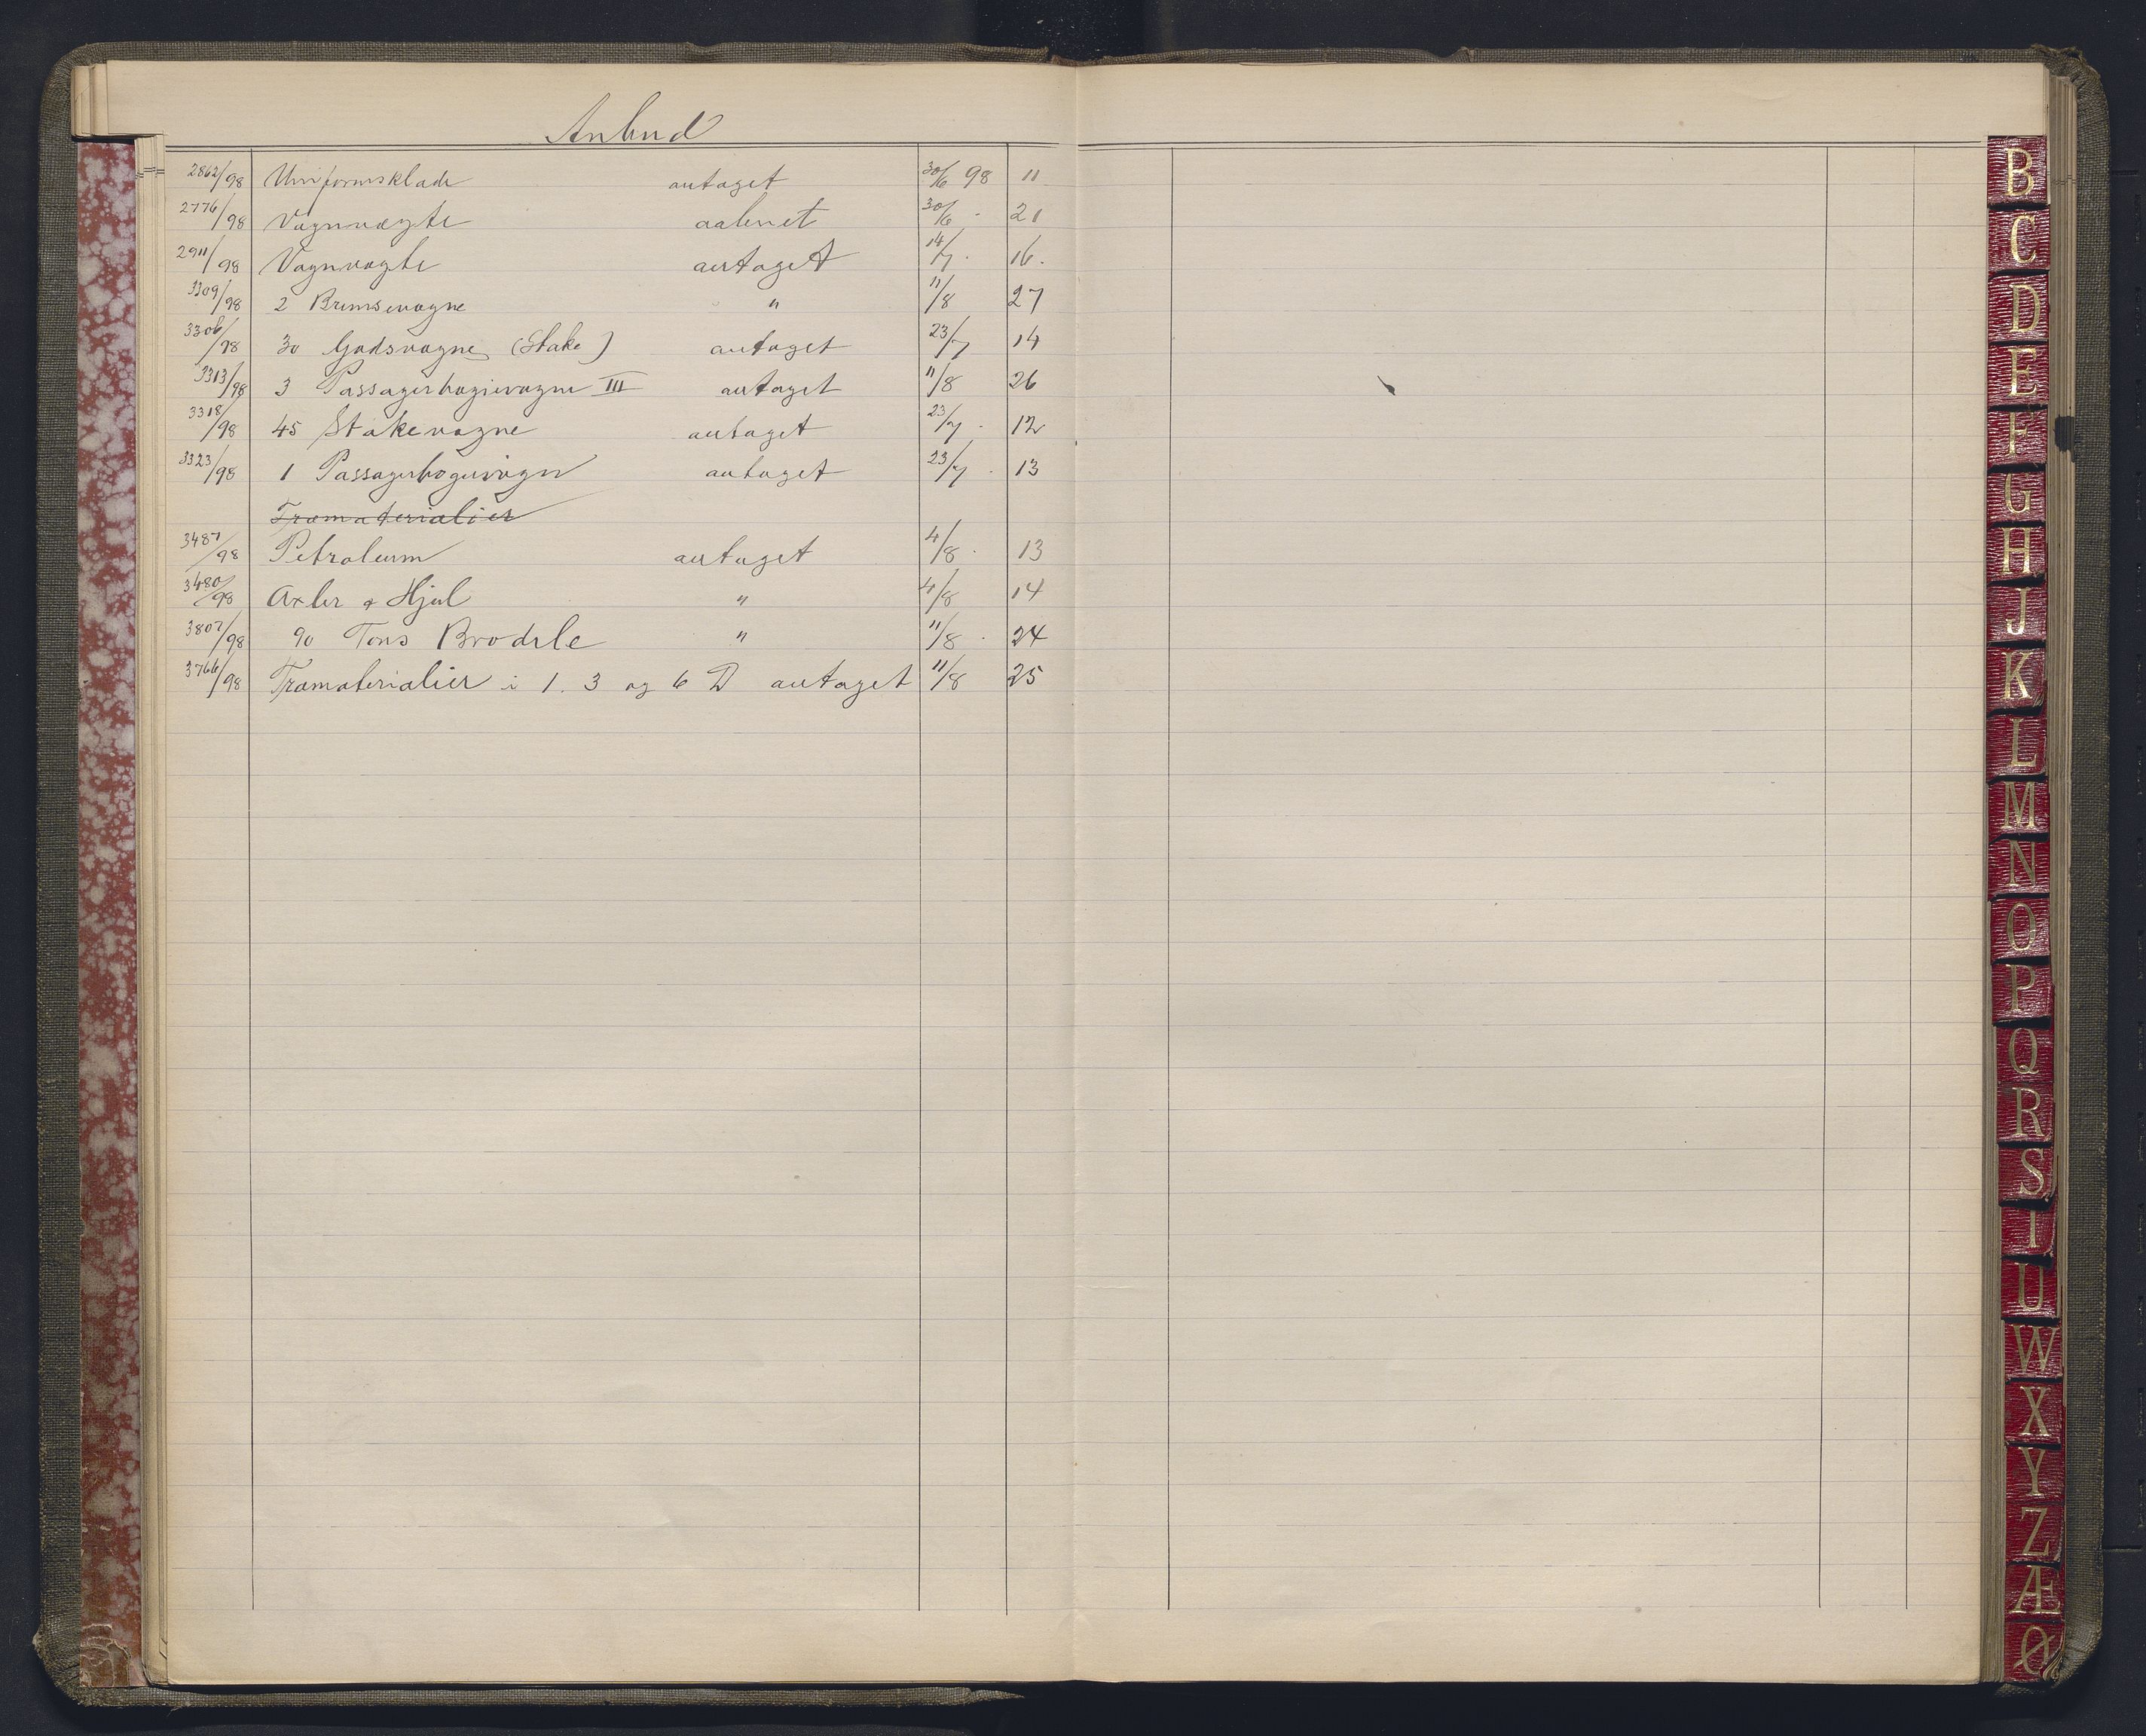 Anbud
2862/98 Uniformsklæde antaget 30/6 98 11
2776/98 Vognvægte aabnet 30/6 - 21
2911/98 Vognvægte antaget 14/7 - 16.
3309/98 2 Bremsevogne " 11/8 27
3306/98 30 Godsvogne (Stake) antaget 23/7 14
3313/98 3 Passagerbogievogne III antaget 11/8 26
3318/98 45 Stakevogne antaget 23/7 - 12
3323/98 1 Passagerbogievogn antaget 23/7 - 13
Træmaterialier
3487/98 Petroleum antaget 4/8 - 13
3480/98 Axler & Hjul " 4/8 14
3807/98 90 Tons Brodele " 11/8 - 24
3766/98 Træmaterialier i 1. 3 og 6 D antaget 11/8 25
B
C
D
E
F
G
H
J
K
L
M
N
O
P
Q
R
S
T
U
W
X
Y
Z
Æ
Ø